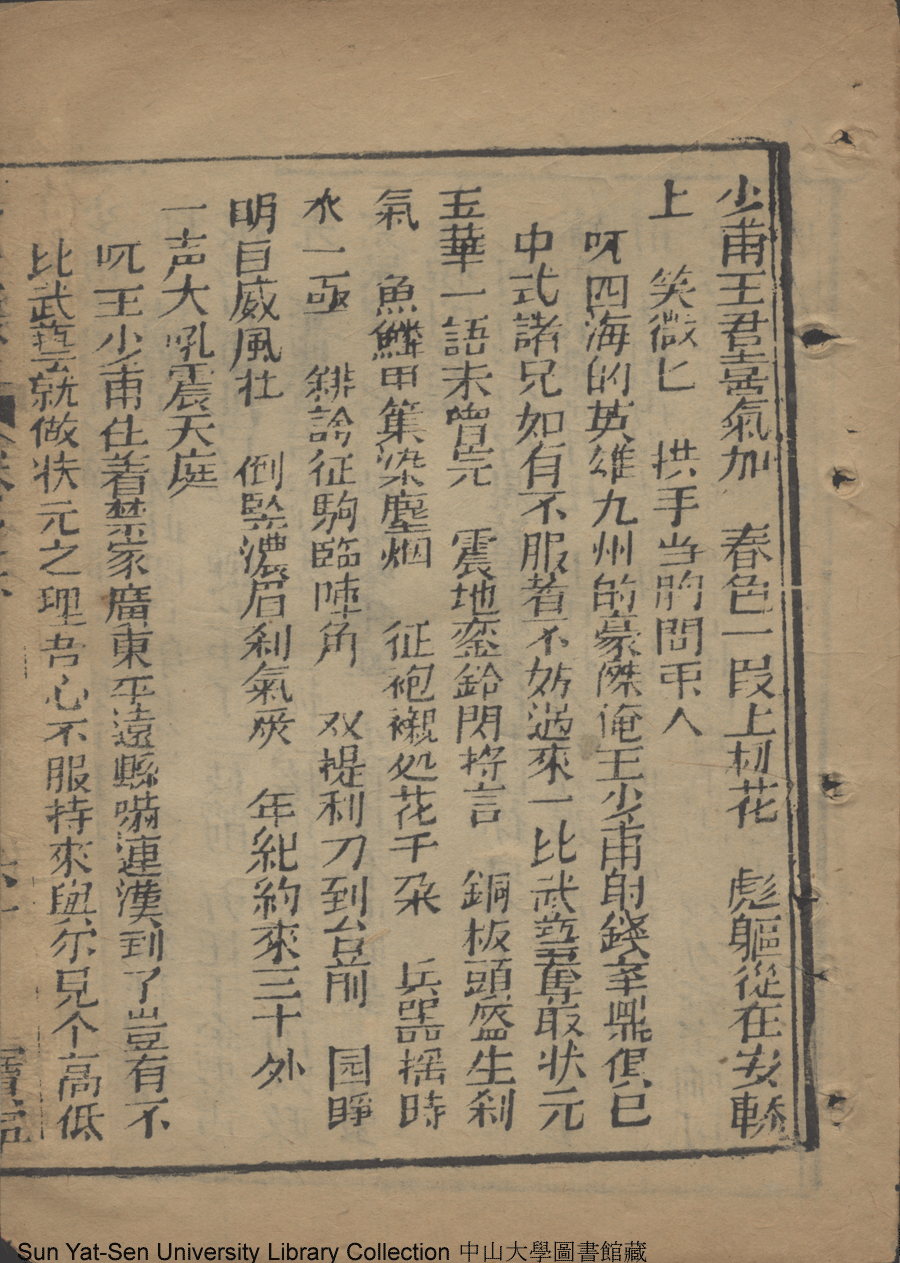 少甫王君喜氣加　春色一段上桃花　彪軀從在安轎
上　笑微匕　拱手当胸問市人
呀四海的英雄九州的豪傑俺王少甫射錢㪯鼎俱已
中式諸兄如有不服者不妨過來一比武藝奪取状元
五華一語未曾完　震地銮鈴閃将言　銅板頭盛生剎
氣　魚鱗甲集染塵烟　征袍襯処花千朵　兵器揺時
水一　　緋　征駒臨陣角　双提利刀到台前　园睁
明目威風壮　倒竪濃眉刹氣　年紀約來三十外
一声大吼震天庭
呔王少甫住着禁家廣東平遠縣　連漢到了豈有不
比武藝就做状元之理吾心不服特來與尔見个高低
Sun Yat-Sen University Library Collection 中山大學圖書館藏